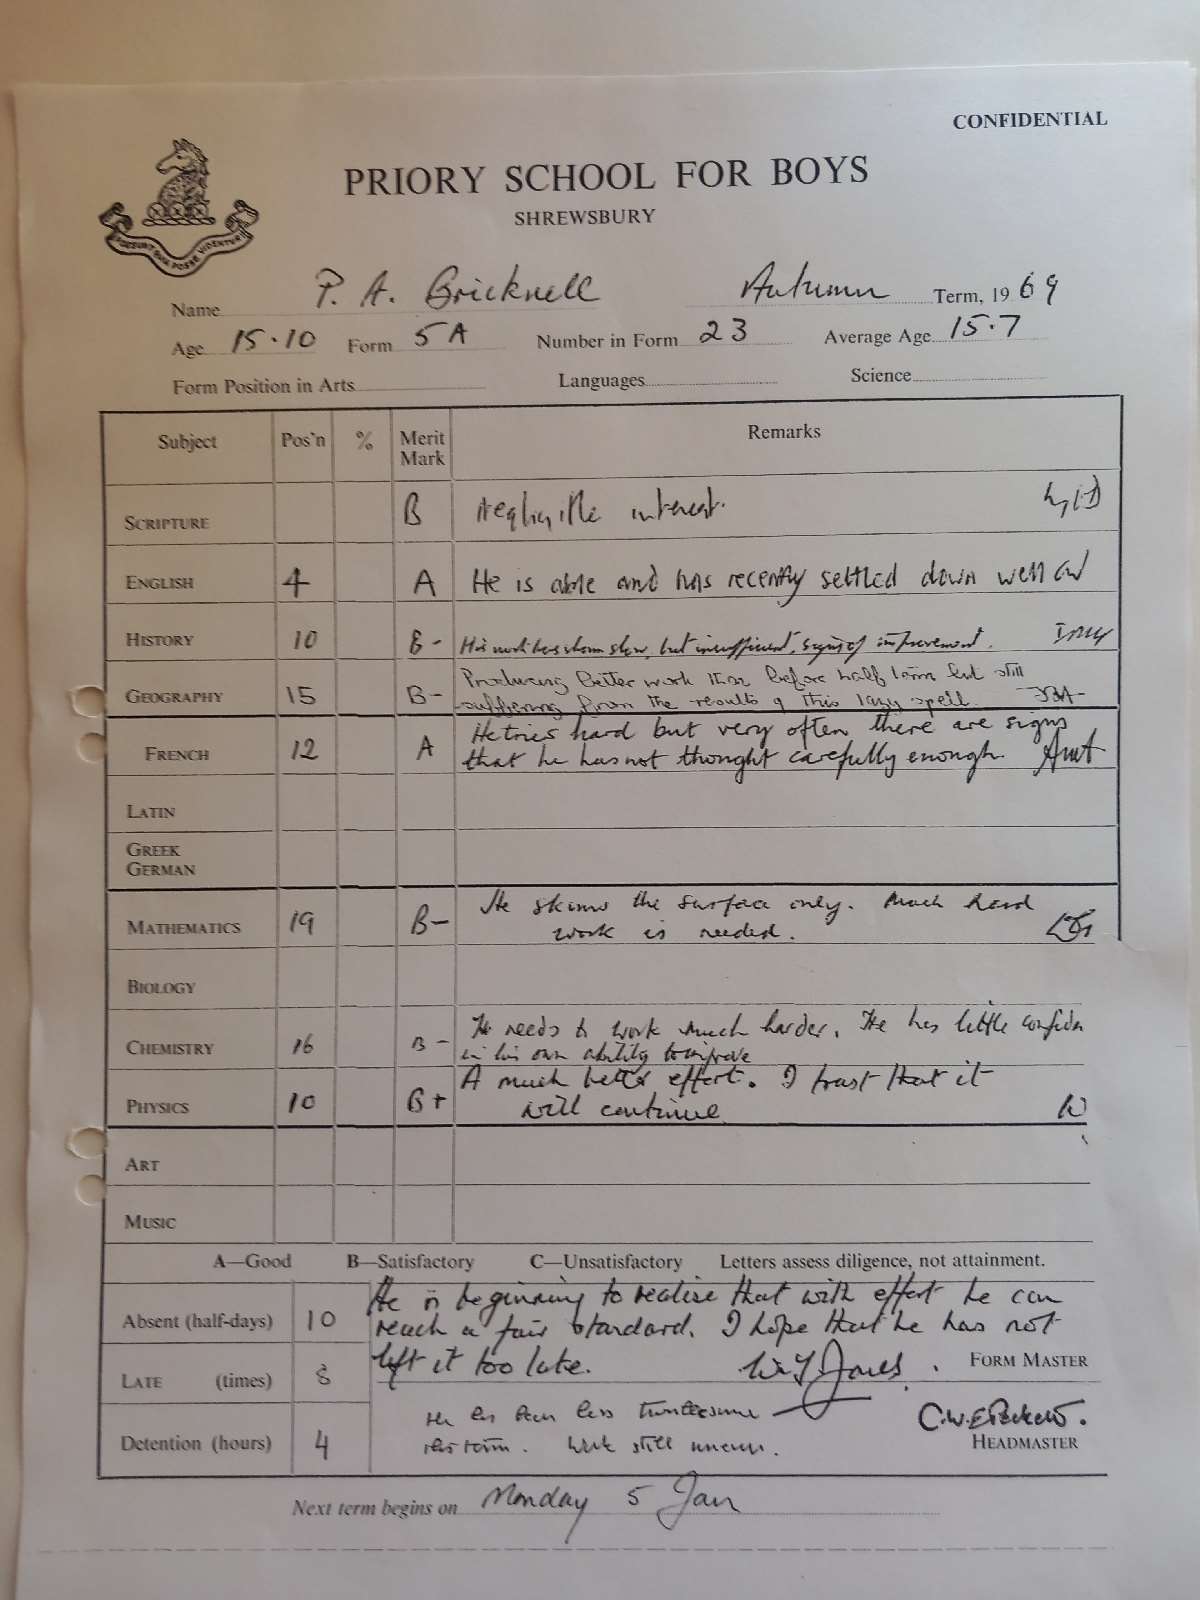 CONFIDENTIAL
PRIORY SCHOOL FOR BOYS
SHREWSBURY
POSSUNT QUIA POSSE VIDENTUR
Name P. A. Bricknell Autumn Term, 1969
Age 15.10 Form 5A Number in Form 23 Average Age 15.7
Form Position in Arts Languages Science
Subject Pos'n % Merit Mark Remarks
SCRIPTURE B Negligible interest.
ENGLISH 4 A He is able and has recently settled down well
HISTORY 10 B- His work has shown slow, but insufficient, signs of improvement.
GEOGRAPHY 15 B- Producing better work than before half term but still
suffering from the results of this lazy spell. JBA
FRENCH 12 A He tries hard but very often there are signs
that he has not thought carefully enough.
LATIN
GREEK
GERMAN
MATHEMATICS 19 B- He skims the surface only. Much hard
work is needed.
BIOLOGY
CHEMISTRY 16 B- He needs to work much harder. He has little confiden
in his own ability to improve
PHYSICS 10 B+ A much better effort. I trust that it
will continue
ART
MUSIC
A—Good B—Satisfactory C—Unsatisfactory Letters assess diligence, not attainment.
Absent (half-days) 10 He is beginning to realise that with effort he can
reach a fair standard. I hope that he has not
left it too late. Jones. FORM MASTER
LATE (times) 8
Detention (hours) 4 He has been less troublesome
this term. Work still uneven.
HEADMASTER
Next term begins on Monday 5 Jan